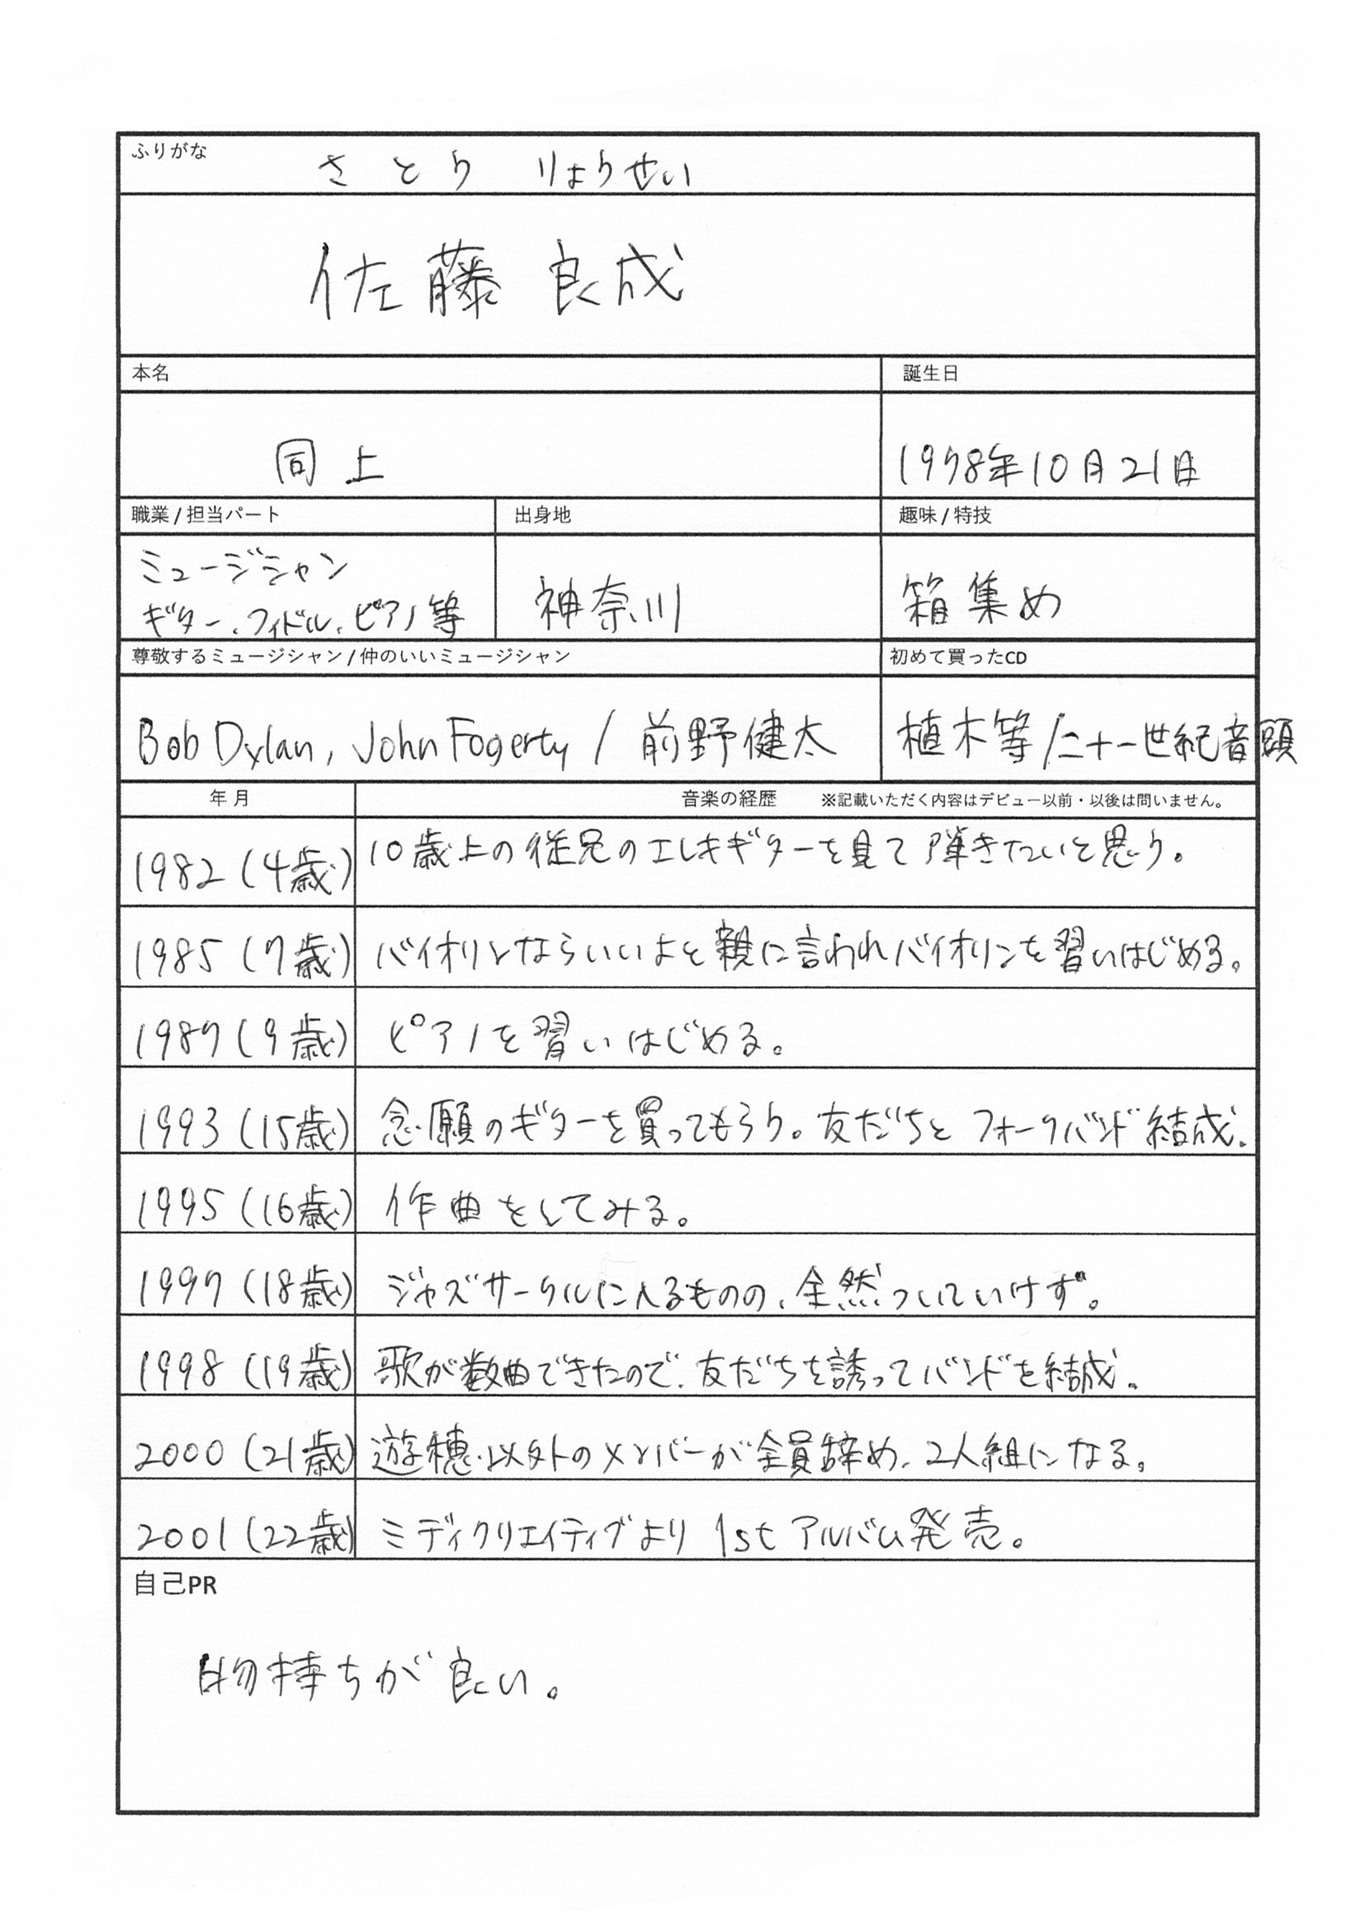 ふりがな
さとう りょうせい
佐藤 良成
本名
誕生日
同上
1978年10月21日
職業/担当パート
出身地
趣味/特技
ミュージシャン
ギター、フィドル、ピアノ等
神奈川
箱集め
尊敬するミュージシャン/仲のいいミュージシャン
初めて買ったCD
Bob Dylan, John Fogerty / 前野健太
植木等/二十一世紀音頭
年月
音楽の経歴 ※記載いただく内容はデビュー以前・以後は問いません。
1982(4歳) 10歳上の従兄のエレキギターを見て弾きたいと思う。
1985(7歳) バイオリンならいいよと親に言われバイオリンを習いはじめる。
1987(9歳) ピアノを習いはじめる。
1993(15歳) 念願のギターを買ってもらう。友だちとフォークバンド結成。
1995(16歳) 作曲をしてみる。
1997(18歳) ジャズサークルに入るものの、全然ついていけず。
1998(19歳) 歌が数曲できたので、友だちを誘ってバンドを結成。
2000(21歳) 遊穂以外のメンバーが全員辞め、2人組になる。
2001(22歳) ミディクリエイティブより1stアルバム発売。
自己PR
物持ちが良い。